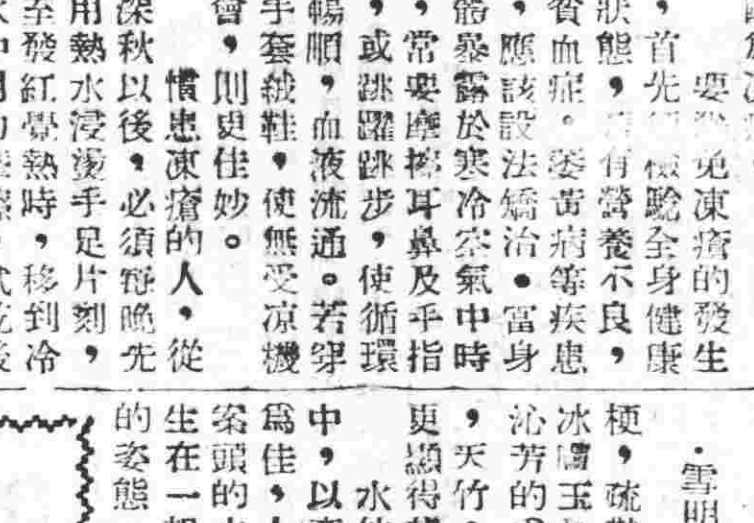 要避免凍瘡的發生
，首先須檢驗全身健康
狀態，有營養不良，
貧血症。萎黃病等疾患
，應該設法矯治。當身
體暴露於寒冷空氣中時
，常要摩擦耳鼻及手指
，或跳躍跳步，使循環
暢順，血液流通。若穿
手套絨鞋，使無受凉機
會，則更佳妙。
慣患凍瘡的人，從
深秋以後，必須每晚先
用熱水浸燙手足片刻，
至發紅覺熱時，移到冷
・雪明
梗，硫
冰肌玉
沁芳的
，天竹
更顯得
水仙
中，以
爲佳，
案頭的
生在一
的姿態